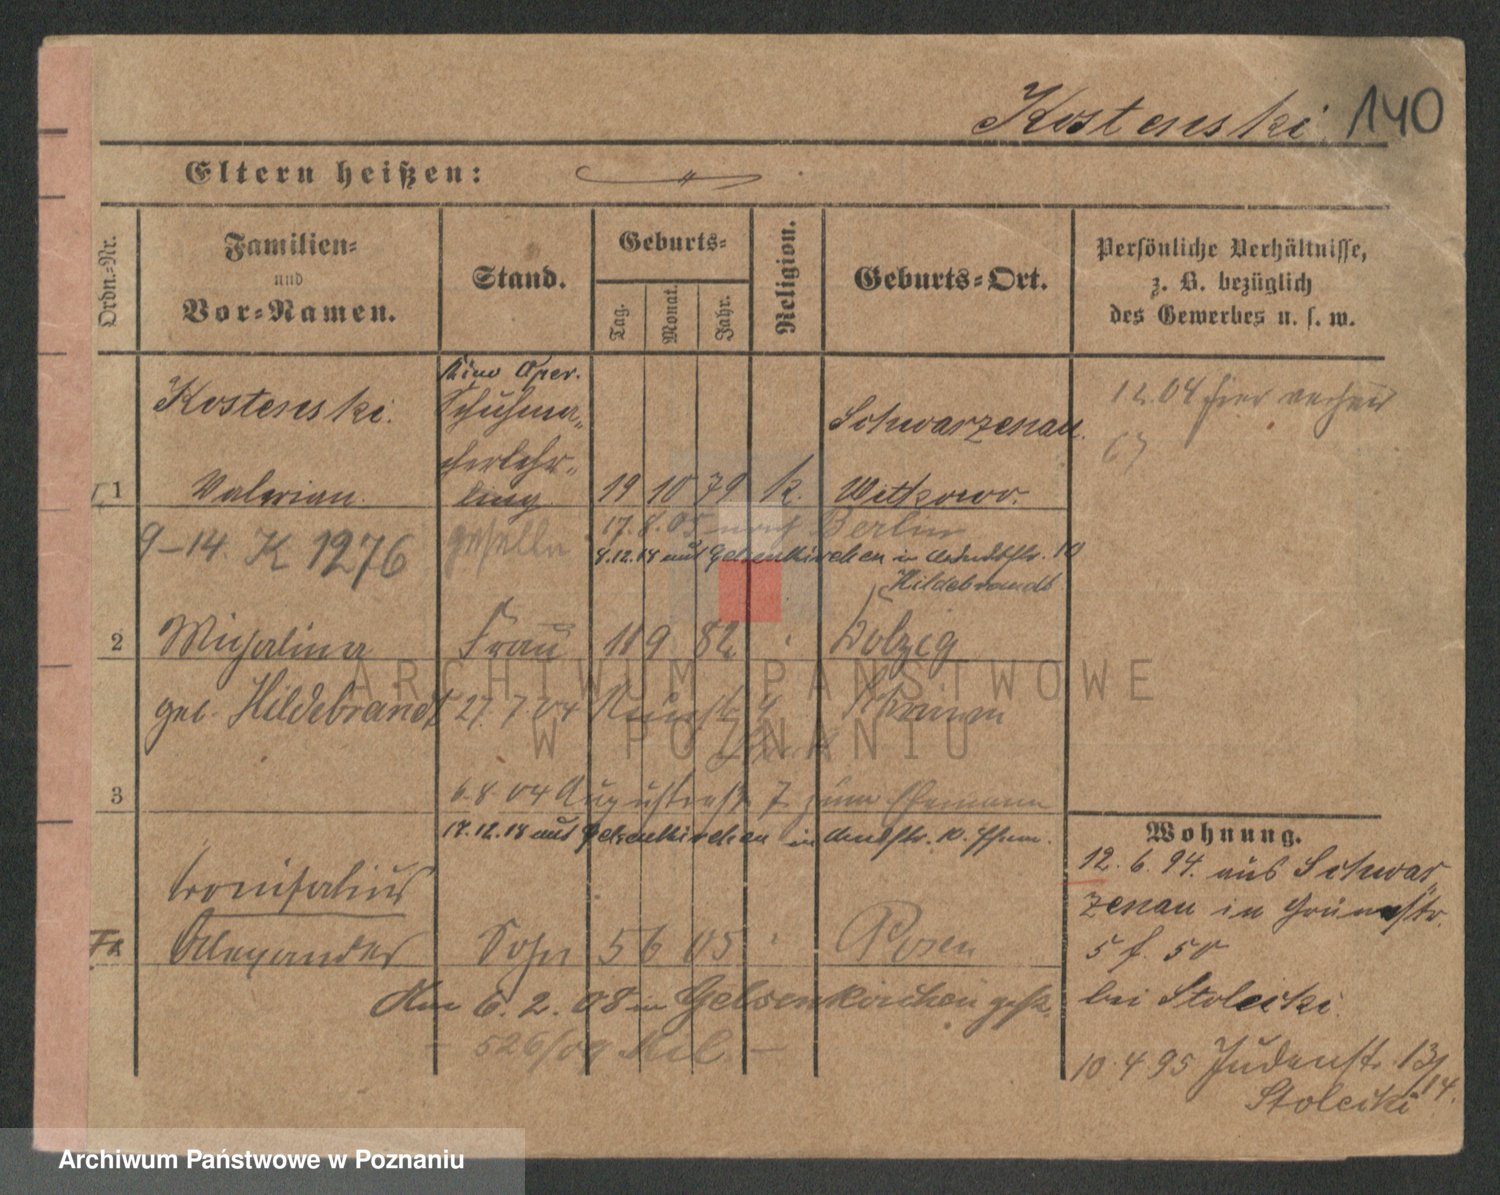 Kostenski 140
Eltern heißen:
Ordn.-Nr.
Familien-
und
Vor-Namen.
Stand.
Geburts-
Tag.
Monat.
Jahr.
Religion.
Geburts-Ort.
Persönliche Verhältnisse,
z. B. bezüglich
des Gewerbes u. s. w.
Kino Oper.
Kostenski. Schuhma-
cherlehr-
1 Valerian. ling 19 10 79 k. Witkowo.
Schwarzenau.
12.04 hier
67
9-14. K 1276 geselle 17.8.05 nach Berlin
8.12.18 aus Gelsenkirchen in 10
Hildebrandt
2 Michalina Frau 11 9 82 Dolzig
geb. Hildebrandt 27.7.04 4 Schrimm
3 6.8.04 Augustastr. 7 zum Ehemann
17.12.18 aus Gelsenkirchen in 10. Ehem.
Bronislaus
Alexander Sohn 5 6 05 Posen
Am 6.2.08 in Gelsenkirchen
526/09
Wohnung.
12.6.94. aus Schwar-
zenau in Grünestr.
5 f. 50
bei Stolecki.
10.4.95 Judenstr. 13/14.
Stolecki
ARCHIWUM PAŃSTWOWE
W POZNANIU
Archiwum Państwowe w Poznaniu